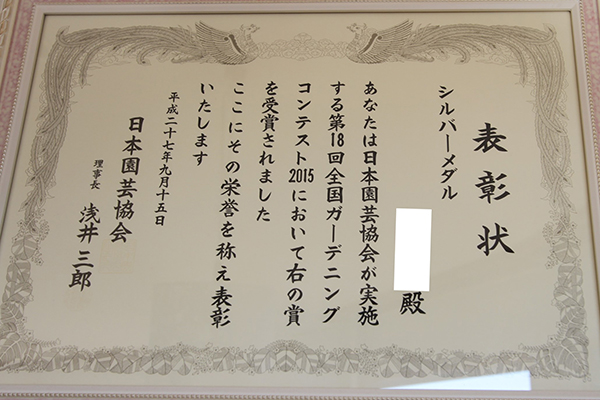 表彰状
シルバーメダル
殿
あなたは日本園芸協会が実施
する第18回全国ガーデニング
コンテスト2015において右の賞
を受賞されました
ここにその栄誉を称え表彰
いたします
平成二十七年九月十五日
日本園芸協会
理事長 浅井三郎